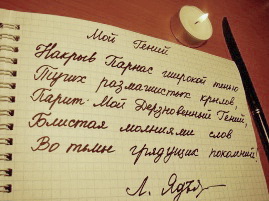 Мой Гений
Накрыв Парнас широкой тенью
Тугих размашистых крылов,
Парит Мой Дерзновенный Гений,
Блистая молниями слов
Во тьмы грядущих поколний!
Л.